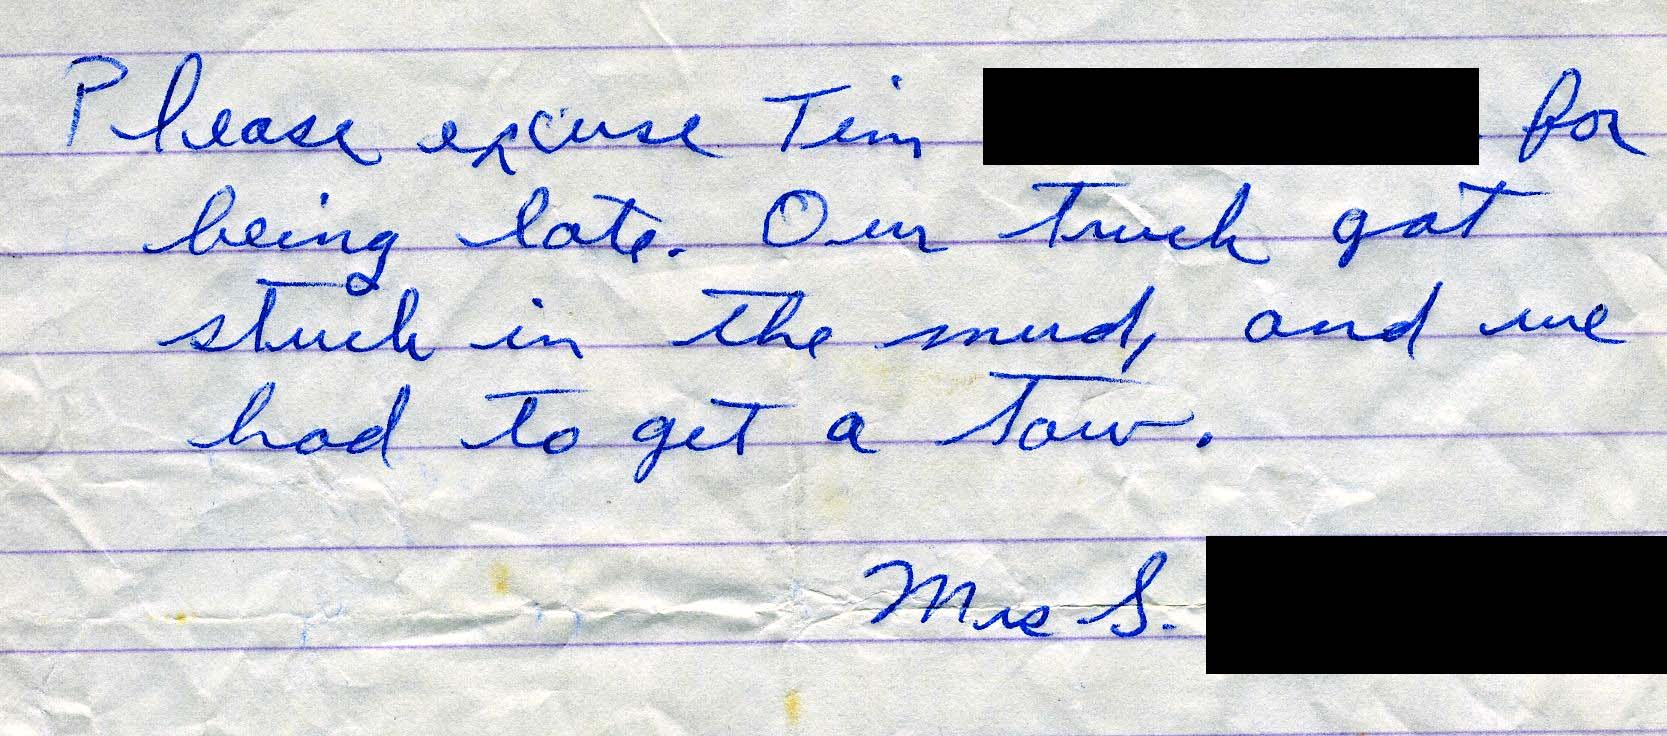 Please excuse Tim for
being late. Our truck got
stuck in the mud, and we
had to get a tow.
Mrs S.